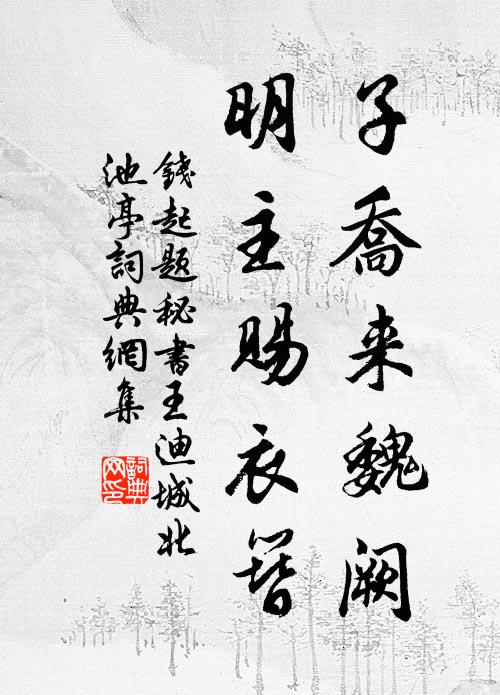 子喬来魏闕
明主賜衣簪
錢起题秘書王迪城北
池亭詞典網集
詞典
网印